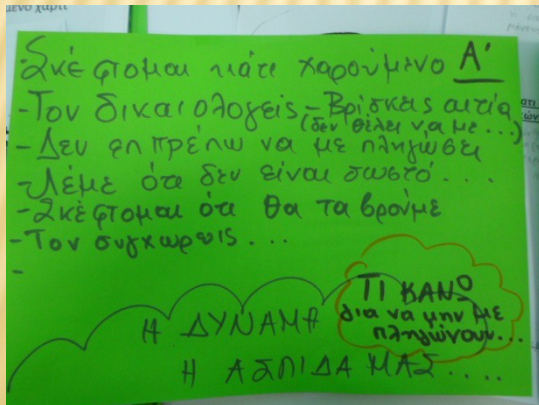 -Σκέφτομαι κάτι χαρούμενο Α'
-Τον δικαιολογείς-Βρίσκεις αιτία
(δεν θέλει να με...)
-Δεν επιτρέπω να με πληγώσει
-Λέμε ότι δεν είναι σωστό....
-Σκέφτομαι ότι θα τα βρούμε
-Τον συγχωρείς...
-
ΤΙ ΚΑΝΩ
για να μην με
πληγώνουν...
Η ΔΥΝΑΜΗ
Η ΑΣΠΙΔΑ ΜΑΣ....